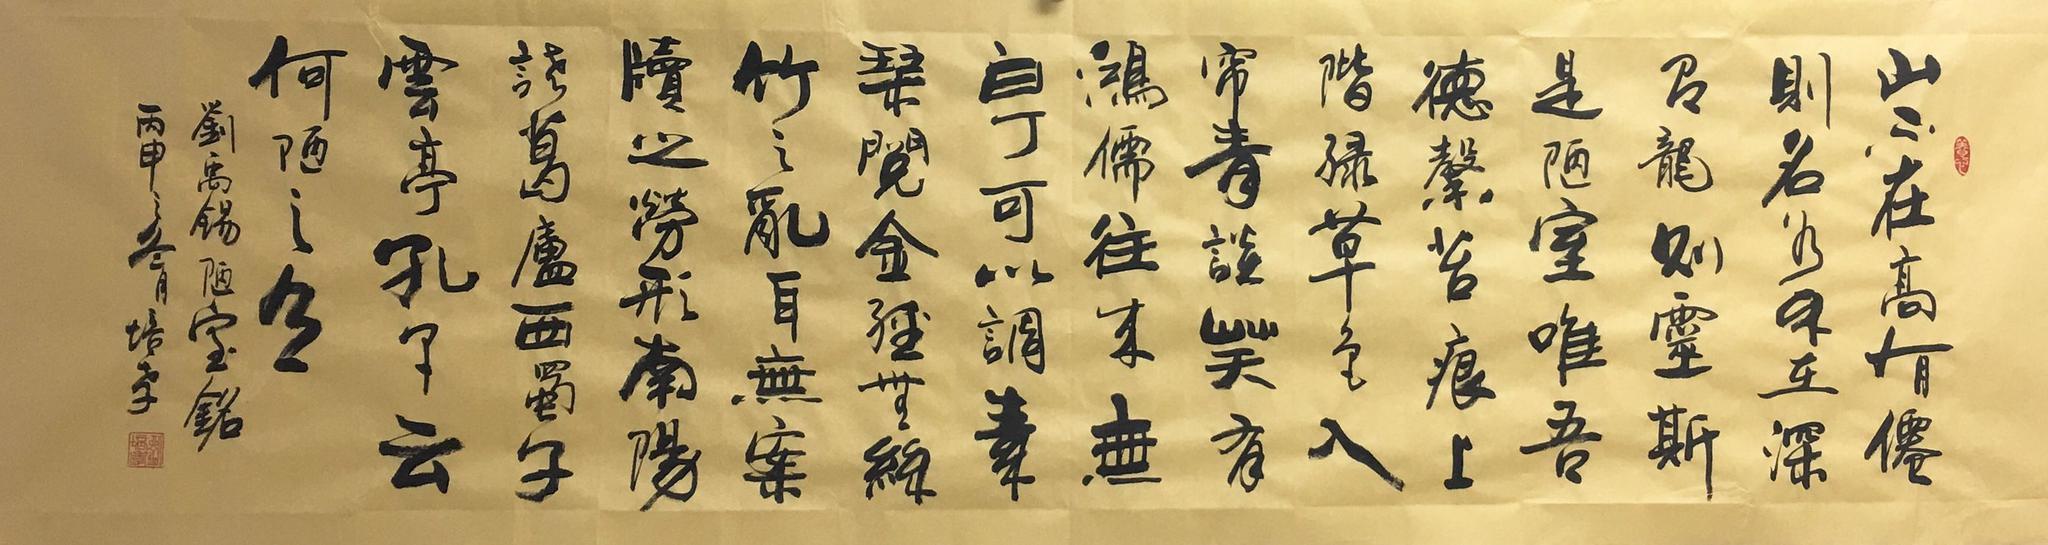 山不在高有僊
則名水不在深
有龍則靈斯
是陋室唯吾
德馨苔痕上
階綠草色入
帘青談笑有
鴻儒往來無
白丁可以調素
琴閱金經無絲
竹之亂耳無案
牘之勞形南陽
諸葛廬西蜀子
雲亭孔子云
何陋之有
劉禹錫陋室銘
丙申之冬月培